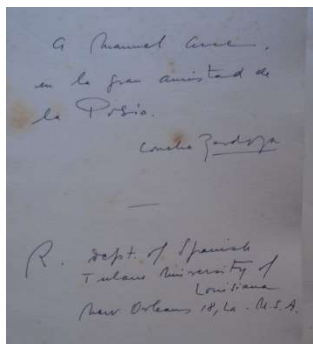 A Manuel Arce,
en la gran amistad de
la Poesía.
Concha Zardoya
R. Dept. of Spanish
Tulane University of
Louisiana
New Orleans 18, La. U.S.A.